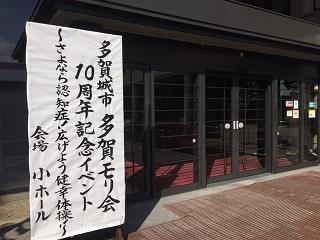 多賀城市 多賀モリ会
10周年記念イベント
〜さよなら認知症!広げよう健幸体操〜
会場 小ホール